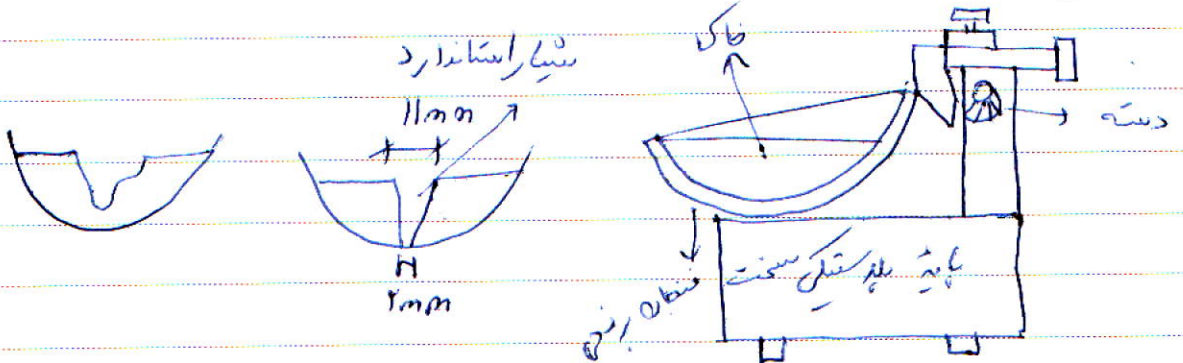 شیار استاندارد
11mm
خاک
دسته
۲mm
پایهٔ پلاستیکی سخت
فنجان برنجی